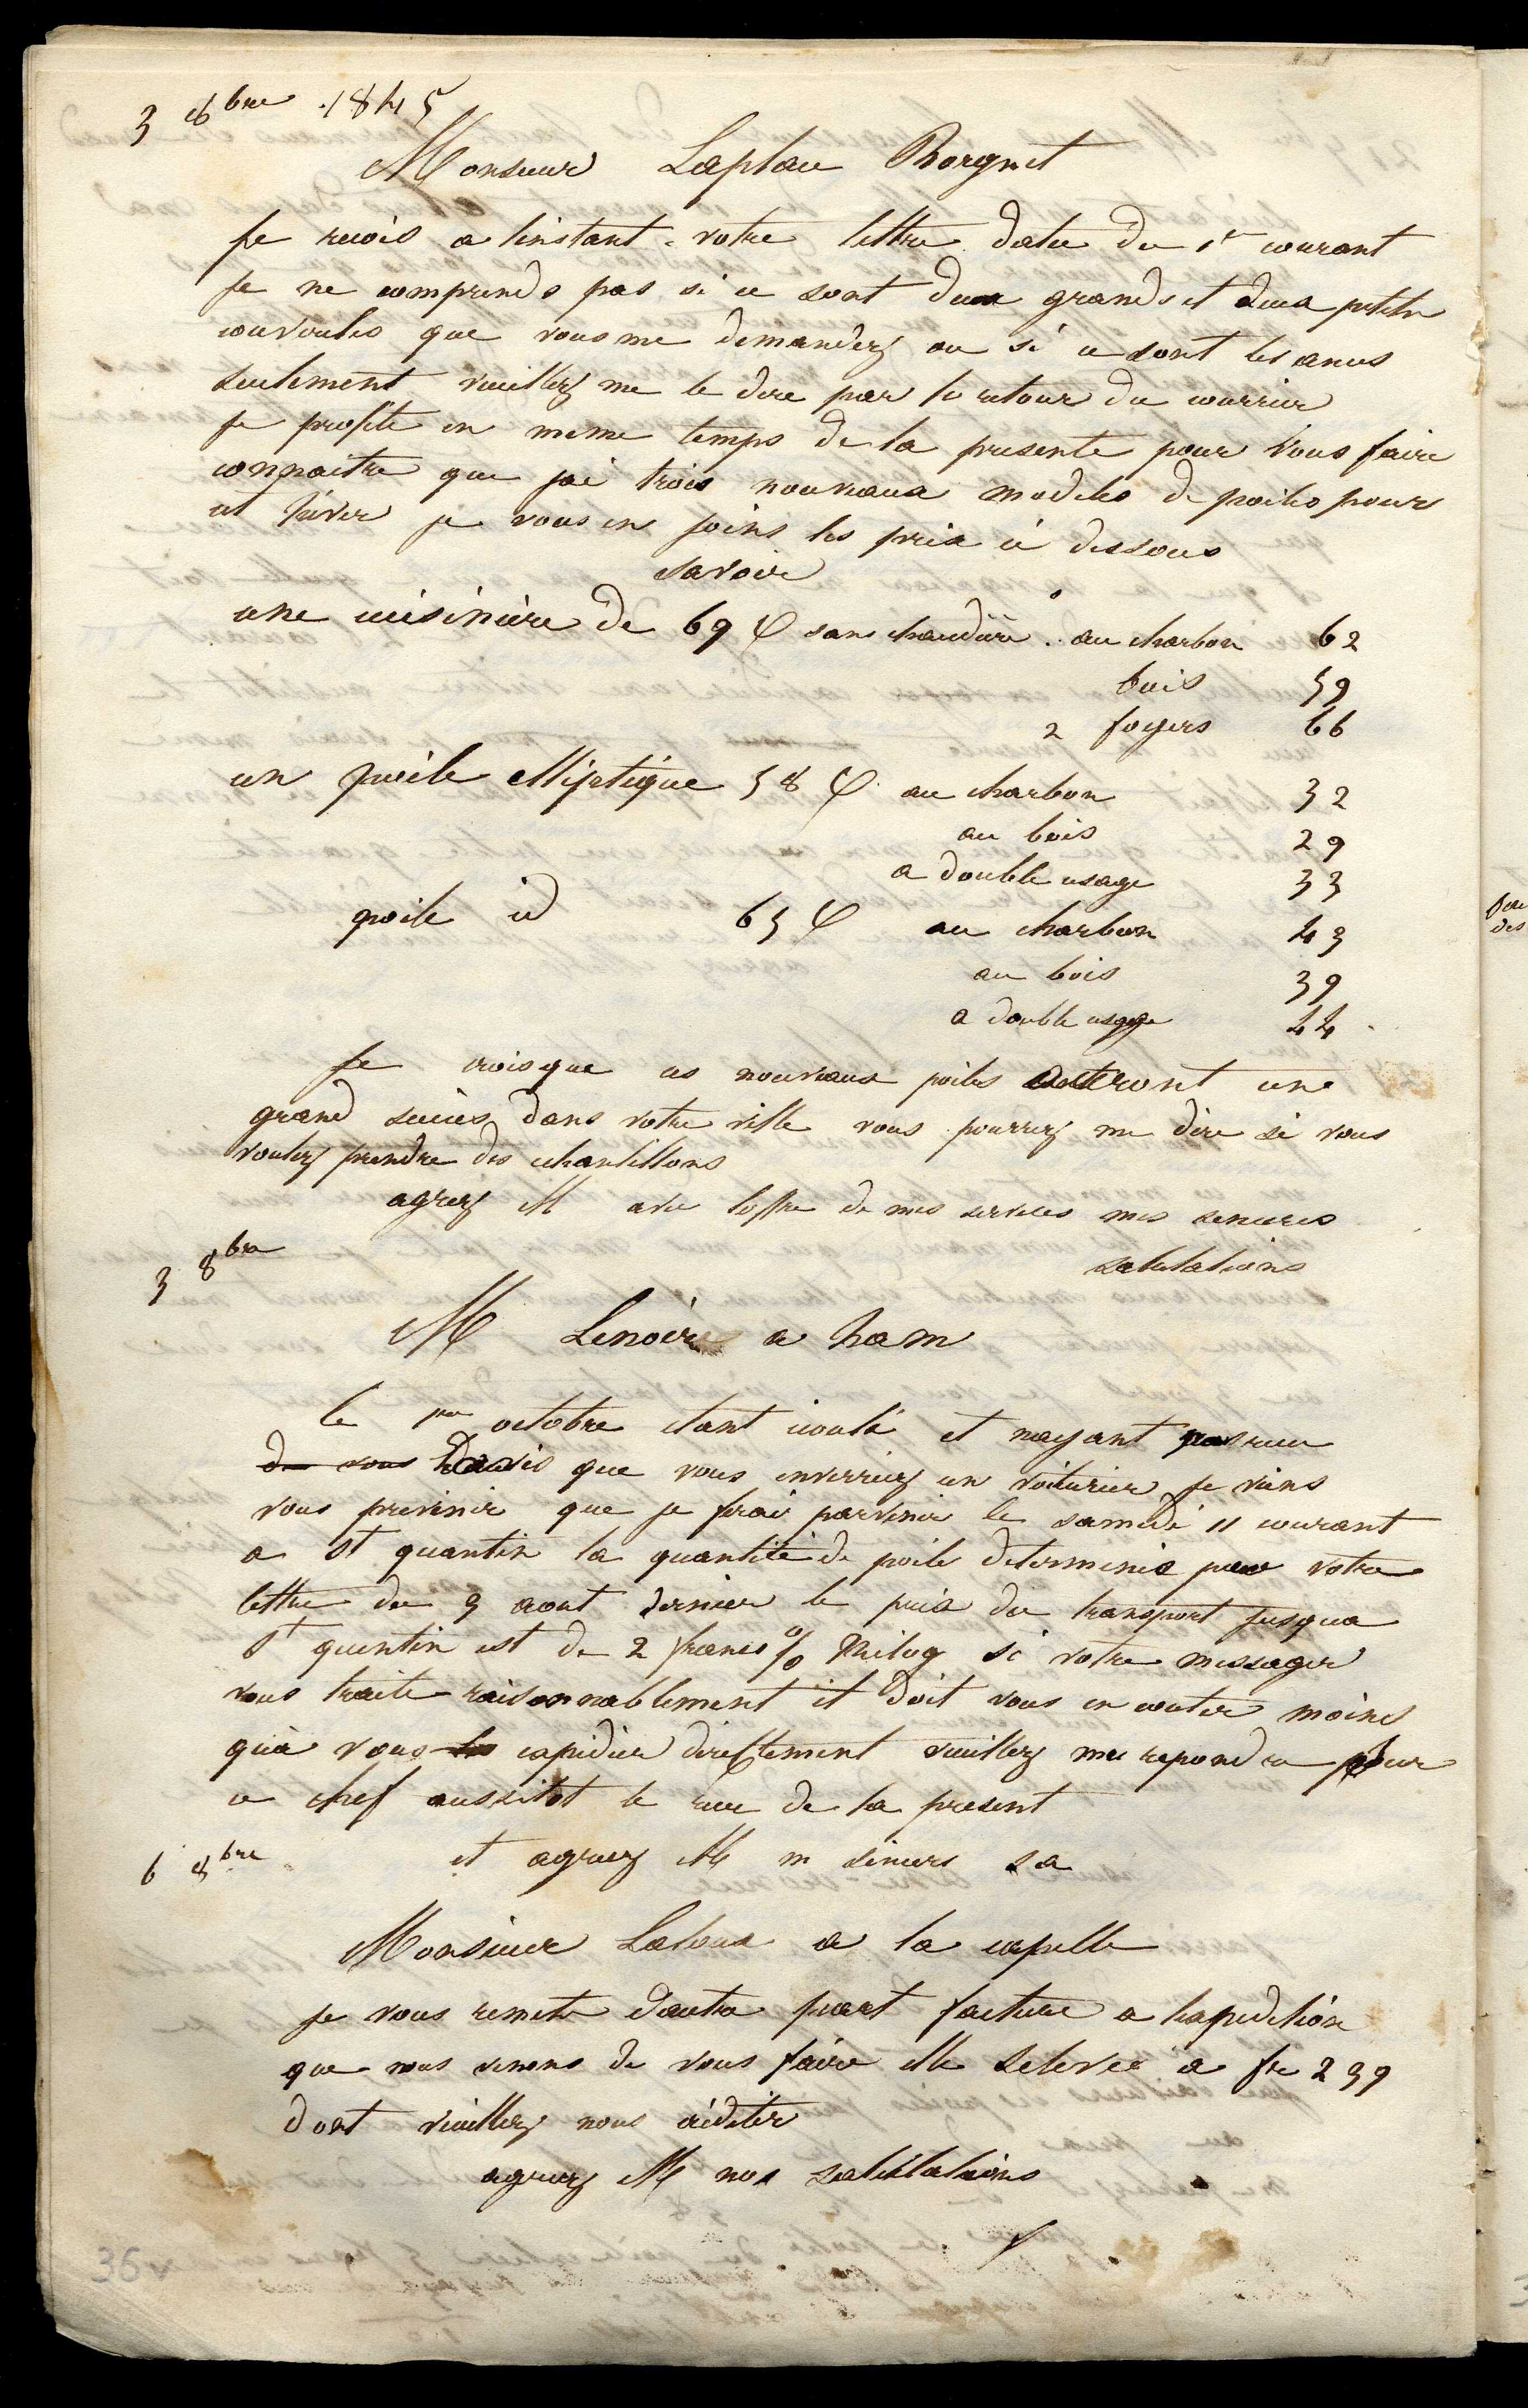 3 8bre 1845
Monsieur Laplau Borgnet
Je recois a linstant votre lettre datee du 1er courant
Je ne comprends pas si ce sont deux grands et deux petits
couvercles que vous me demandez ou si ce sont les
seulement veuillez me le dire par le retour du courrier
je profite en meme temps de la presente pour vous faire
connaitre que jai trois nouveaux modeles de poiles pour
cet hiver je vous en joins les prix ci dessous
savoir
une cuisiniere de 69 sans chaudiere au charbon 62
bois 59
2 foyers 66
un poile elliptique 58 au charbon 32
au bois 29
a double usage 33
poile id 65 au charbon 43
au bois 39
a double usage 44
Je crois que ces nouveaux poiles auront une
grand succes dans votre ville vous pourrez me dire si vous
voulez prendre des echantillons
agreez M avec loffre de mes services mes sinceres
salutations
3 8bre
M Lenoir a ham
le 1er octobre etant ecoulé et nayant pas recu
de vous davis que vous enverriez un voiturier je viens
vous prevenir que je ferai parvenir le samedi 11 courant
a St quantin la quantité de poile determinée par votre
lettre du 9 aout dernier le prix du transport jusqua
St quentin est de 2 francs % kilog si votre messager
vous traite raisonnablement il doit vous en couter moins
qu'à vous les expidier directement veuillez me repondre pour
ce chef aussitot le recu de la present
et agreez M m sincers sa
6 8bre
Monsieur Laloux a la capelle
je vous remets dautre part facture a lexpedition
que nous venons de vous faire elle seleve a fr 239
dont veuillez nous créditer
agreez M nos salutations
36v